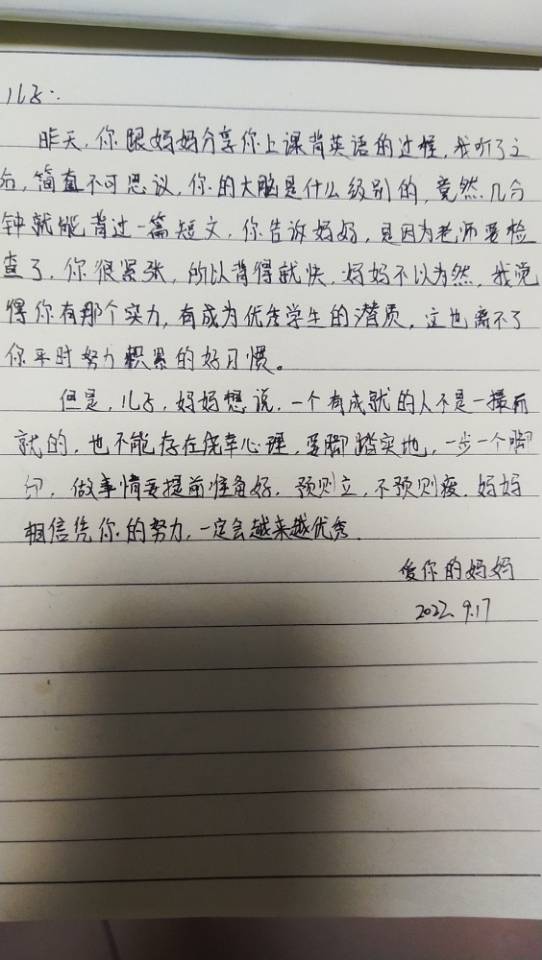 儿子:
昨天,你跟妈妈分享你上课背英语的过程,我听了之
后,简直不可思议,你的大脑是什么级别的,竟然几分
钟就能背过一篇短文,你告诉妈妈,是因为老师要检
查了,你很紧张,所以背得就快,妈妈不以为然,我觉
得你有那个实力,有成为优秀学生的潜质,这也离不了
你平时努力积累的好习惯。
但是,儿子,妈妈想说,一个有成就的人不是一撮而
就的,也不能存在侥幸心理,要脚踏实地,一步一个脚
印,做事情要提前准备好,预则立,不预则废,妈妈
相信凭你的努力,一定会越来越优秀.
爱你的妈妈
2022.9.17